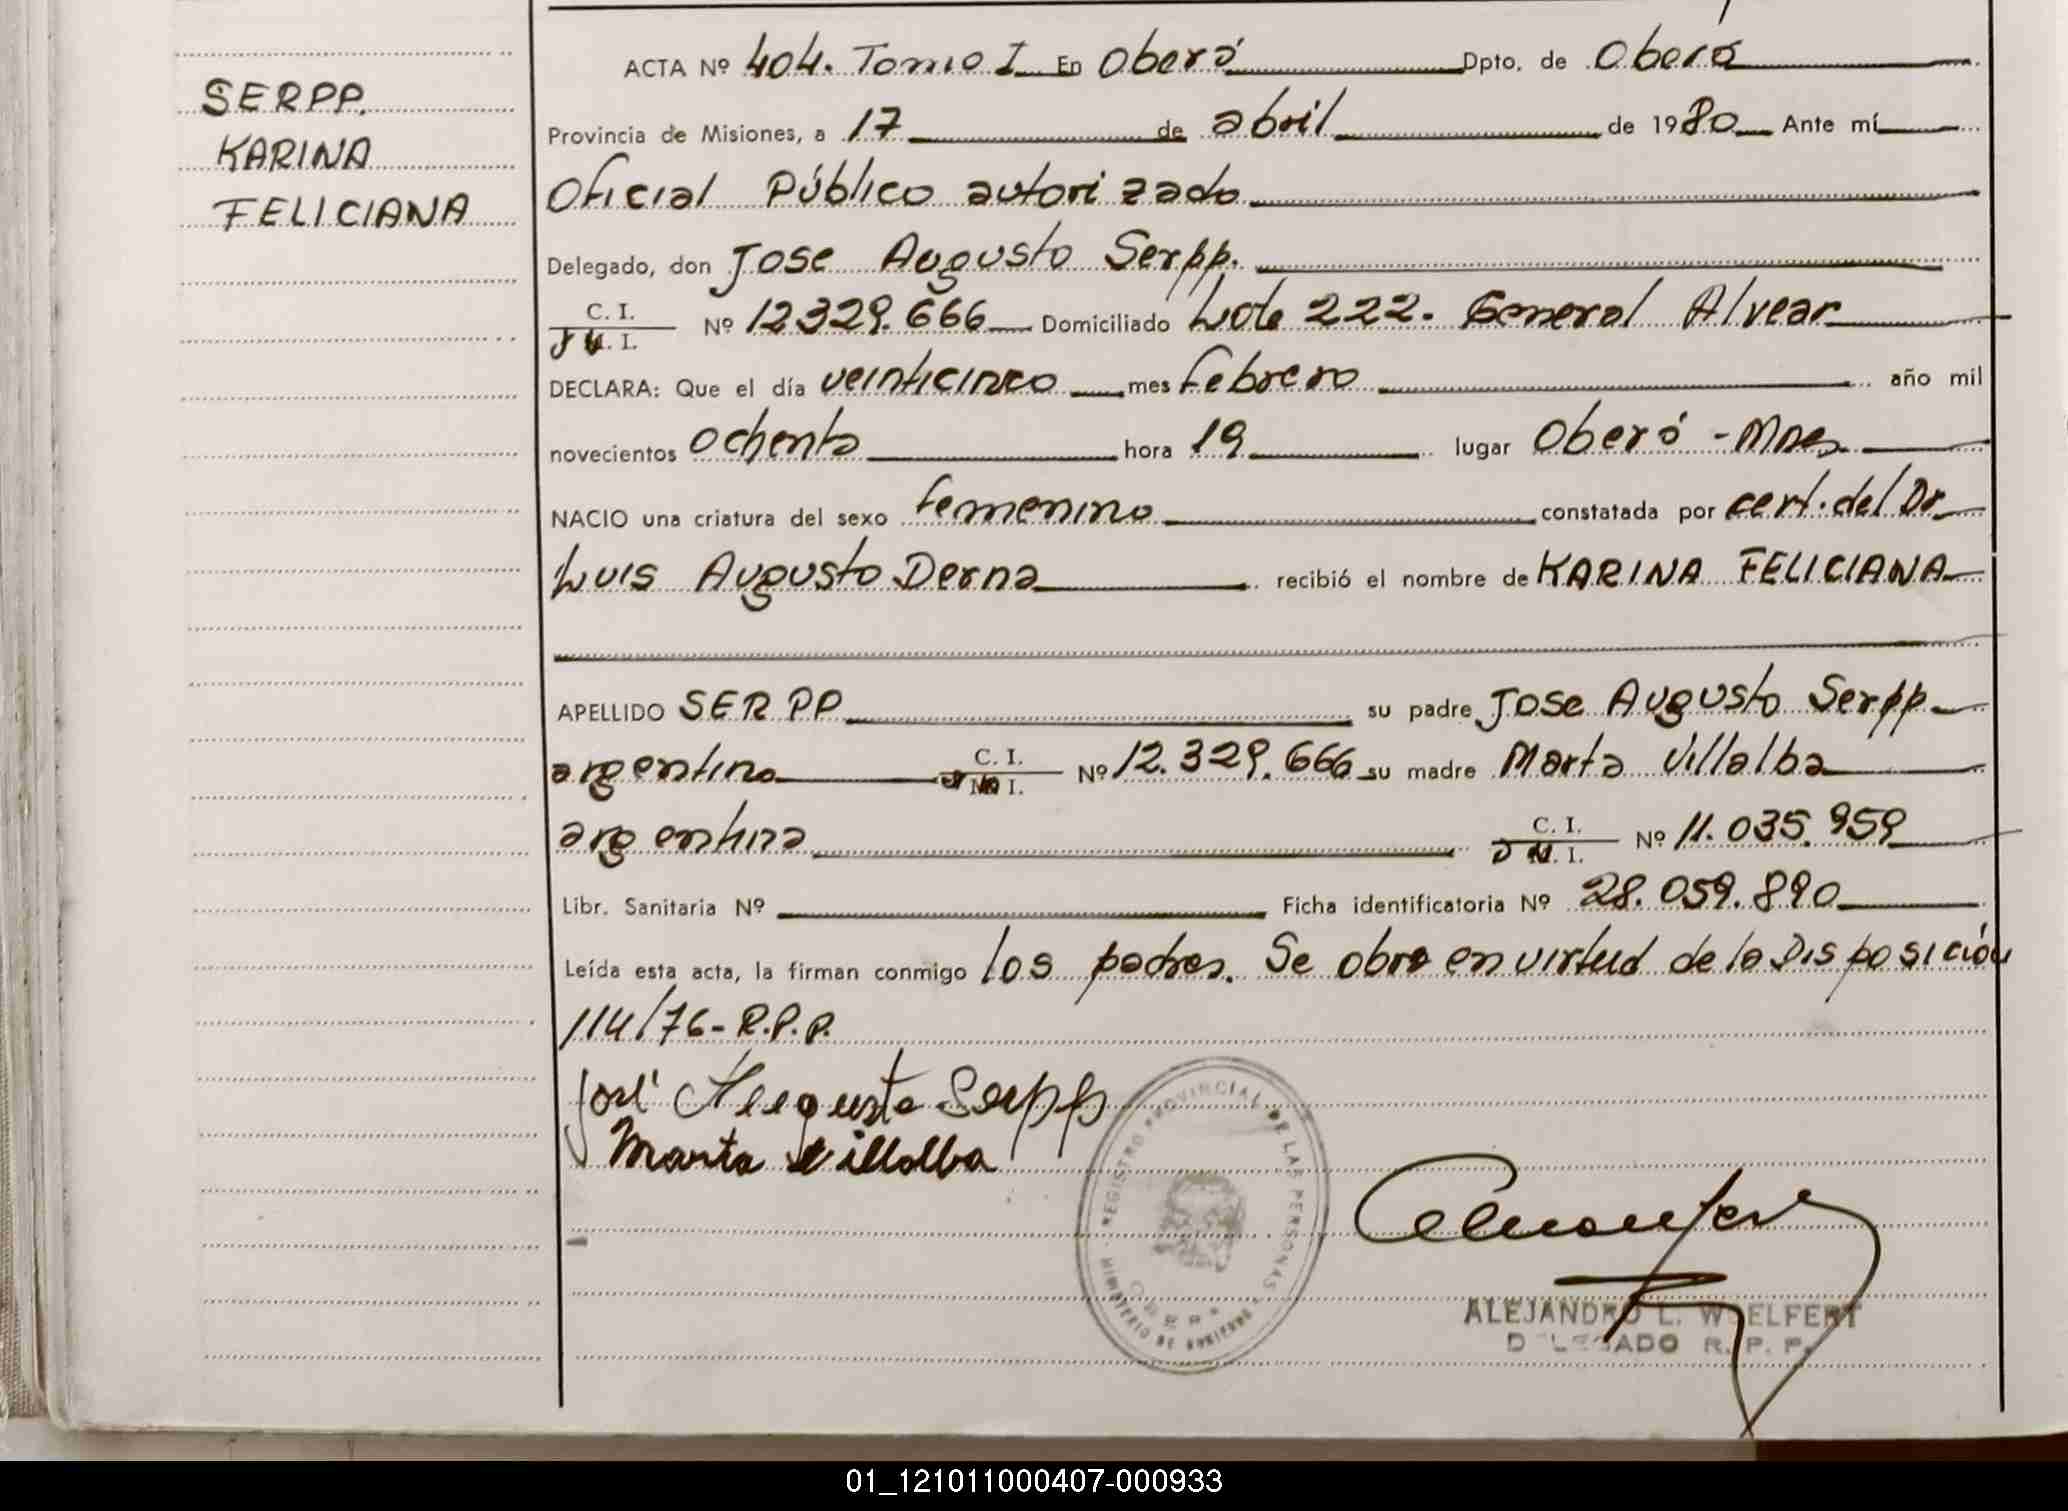 SERPP.
KARINA
FELICIANA
ACTA Nº 404. Tomo I En Oberá Dpto. de Oberá
Provincia de Misiones, a 17 de abril de 1980 Ante mí
Oficial Público autorizado
Delegado, don Jose Augusto Serpp.
C. I.
Nº 12329.666 Domiciliado Lote 222. General Alvear
M. I.
DECLARA: Que el día veinticinco mes febrero año mil
novecientos ochenta hora 19 lugar Oberá - Mnes
NACIO una criatura del sexo femenino constatada por cert. del Dr
Luis Augusto Derna recibió el nombre de KARINA FELICIANA
APELLIDO SERPP su padre Jose Augusto Serpp
argentino C. I. M. I. Nº 12.329.666 su madre Marta Villalba
argentina C. I. M. I. Nº 11.035.959
Libr. Sanitaria Nº Ficha identificatoria Nº 28.059.890
Leída esta acta, la firman conmigo los padres. Se obra en virtud de la Disposición
114/76- R.P.P.
José Augusto Serpp
Marta Villalba
REGISTRO PROVINCIAL DE LAS PERSONAS
MINISTERIO DE GOBIERNO
OBERA
ALEJANDRO L. WOELFERT
DELEGADO R. P. P.
01_121011000407-000933